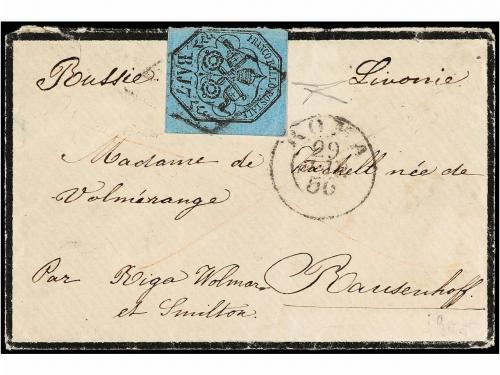 Russie Livonie
FRANCO BOLLO POSTALE
BAI 7
ROMA
29
56
Madame de née de
Volmérange
Par Riga Wolmar Rausenhoff.
et Smilton.